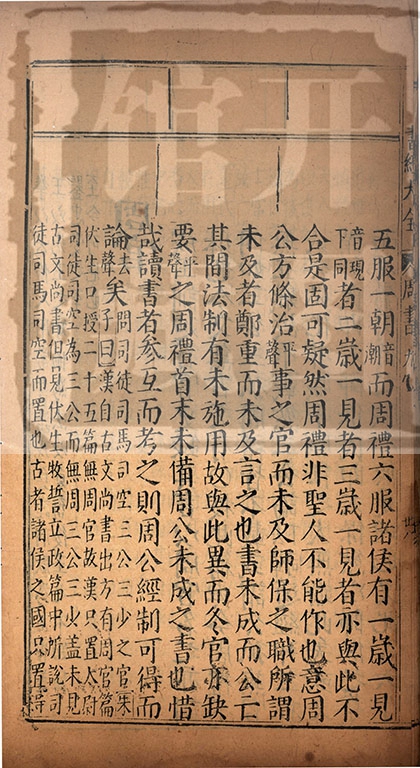 五服一朝音潮而周禮六服諸侯有一歲一見
音現下同者二歲一見者三歲一見者亦與此不
合是固可疑然周禮非聖人不能作也意周
公方條治平聲事之官而未及師保之職所謂
未及者鄭重而未及言之也書未成而公亡
其間法制有未施用故與此異而冬官亦缺
要平聲之周禮首末未備周公未成之書也惜
哉讀書者參互而考之則周公經制可得而
論去聲矣問司徒司馬司空三公三少之官朱
子曰漢自古文尚書出方有周官篇
伏生口授二十五篇無周官故漢只置太尉
司徒司空為三公而無周三公三少蓋未見
古文尚書但見伏生牧誓立政篇中所說司
徒司馬司空而置也古者諸侯之國只置得
开馆